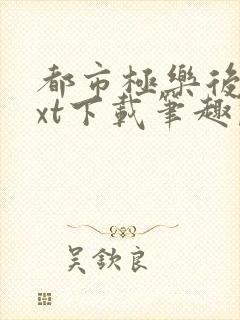 都市極樂後
xt下載筆趣
吳欽良